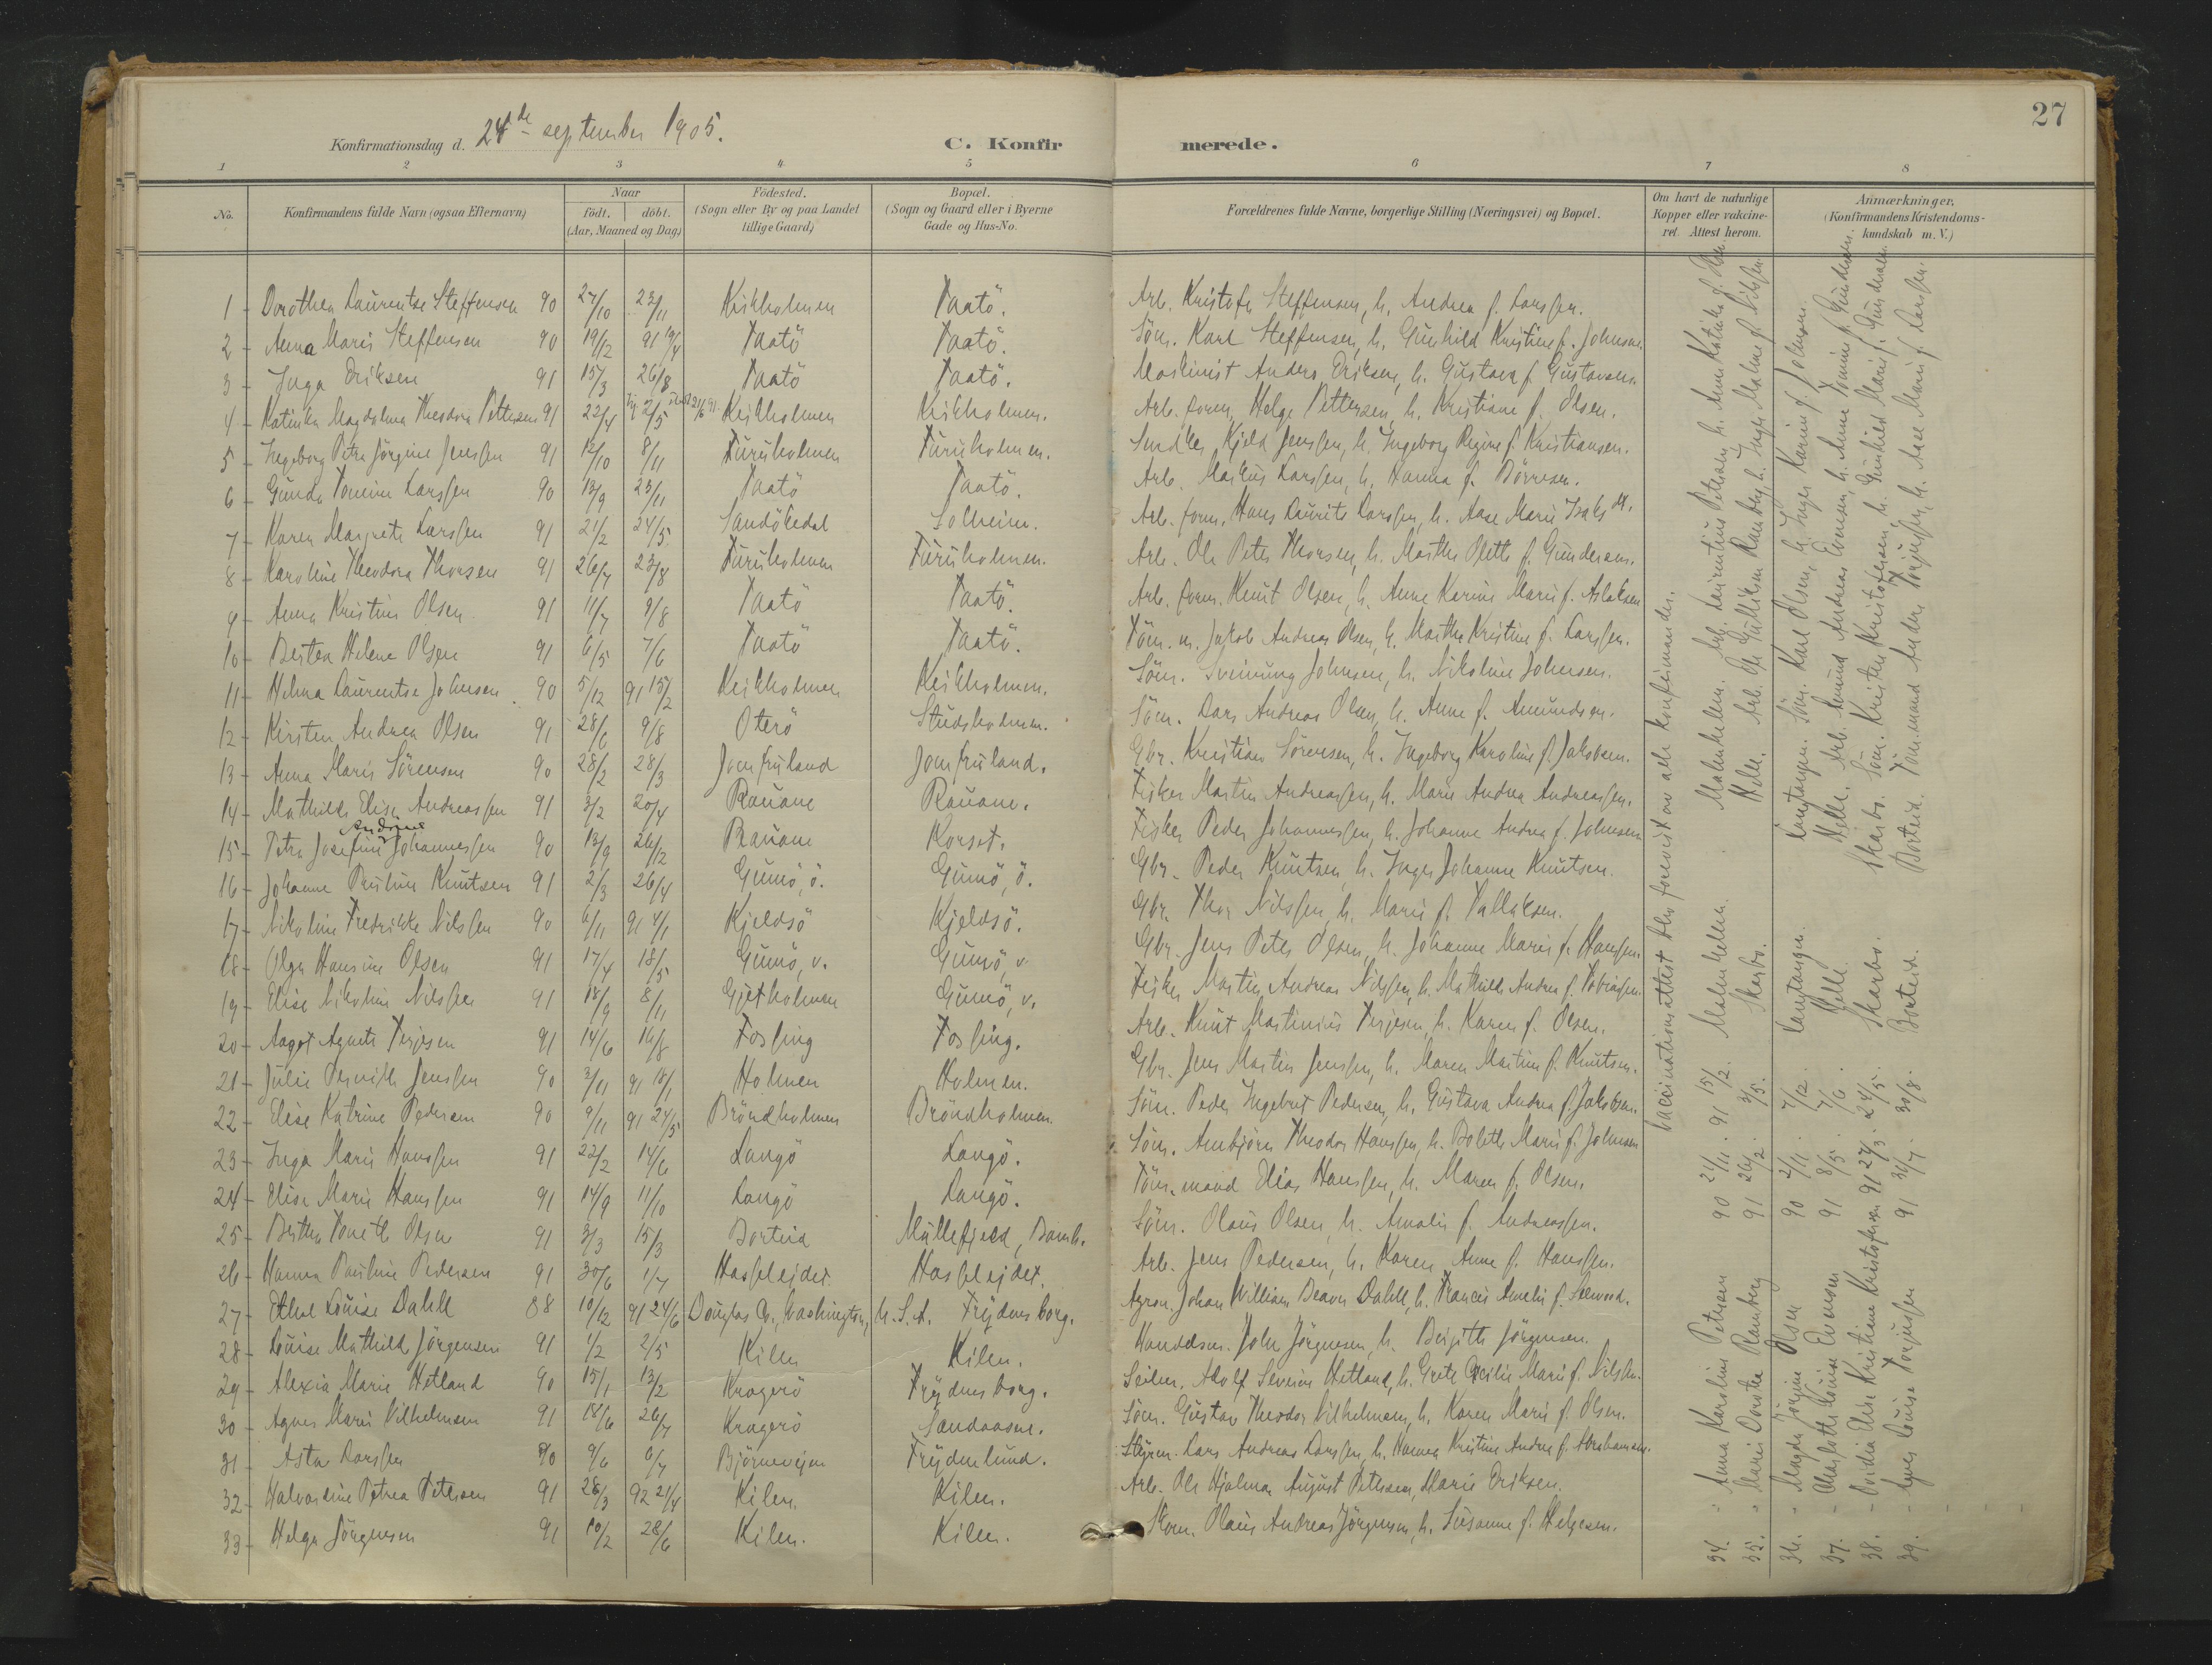 27
Konfirmationsdag d. 24de september 1905.
C. Konfir merede.
1 2 3 4 5 6 7 8
No.
Konfirmandens fulde Navn (ogsaa Efternavn)
Naar
født. døbt.
(Aar, Maaned og Dag)
Fødested.
(Sogn eller By og paa Landet
tillige Gaard)
Bopæl.
(Sogn og Gaard eller i Byerne
Gade og Hus-No.
Forældrenes fulde Navne, borgerlige Stilling (Næringsvei) og Bopæl.
Om havt de naturlige
Kopper eller vakcine-
ret. Attest herom.
Anmærkninger.
(Konfirmandens Kristendoms-
kundskab m. V.)
1 - Dorothea Laurentse Steffensen 90 27/10 23/11 Kirkholmen Taatö. Arb. Kristofer Steffensen, h. Andrea f. Larssen.
2 - Anna Marie Steffensen 90 19/12 91 19/4 Taatö Taatö. Söm. Karl Steffensen, h. Gunhild Kristine f. Johnsen.
3 - Inga Eriksen 91 15/3 26/8 Taatö Taatö. Maskinist Anders Eriksen, h. Gustava f. Gustavsen.
4 - Katinka Magdalena Theodora Pettersen 91 22/4 2/5 21/6 91 Keikholmen Keikholmen. Arb. form. Helge Pettersen, h. Kristiane f. Olsen.
5 - Ingeborg Petra Jörgine Jenssen 91 12/10 8/11 Furuholmen Furuholmen. Kjeld Jenssen, h. Ingeborg Regine f. Kristiansen.
6 - Gunda Tomine Larssen 90 13/9 23/11 Taatö Taatö. Arb. Markus Larssen, h. Hanna f. Börresen.
7 - Karen Margrete Larssen 91 21/2 24/5 Sandökedal Solheim. Arb. form. Hans Laurits Larssen, h. Aase Marie Isaksdt.
8 - Karoline Theodora Thorsen 91 26/7 23/8 Furuholmen Furuholmen. Arb. Ole Peter Thorsen, h. Marthe Olette f. Gundersen.
9 - Anna Kristine Olsen 91 11/7 9/8 Taatö Taatö. Arb. form. Knut Olsen, h. Anne Karine Marie f. Aslaksen
10 - Bertea Helene Olsen 91 6/5 7/6 Taatö Taatö. Töm. m. Jakob Andreas Olsen, h. Marthe Kristine f. Larssen.
11 - Helma Laurentse Johnsen 90 5/12 91 15/2 Keikholmen Keikholmen. Söm. Sveinung Johnsen, h. Nikoline Johnsen.
12 - Kirsten Andrea Olsen 91 28/6 9/8 Oterö Studsholmen. Söm. Lars Andreas Olsen, h. Anne f. Amundsen.
13 - Anna Marie Sörensen 90 28/2 28/3 Jomfruland Jomfruland. Gbr. Kristian Sörensen, h. Ingeborg Karoline f. Jakobsen.
14 - Mathilde Elise Andreassen 91 3/2 20/4 Rauane Rauane. Fisker Martin Andreassen, h. Marie Andrea Andreassen.
Andrine
15 - Petra Josefine Johannessen 90 13/9 26/12 Rauane Korset. Fisker Peder Johannessen, h. Johanne Andrea f. Johnsen
16 - Johanne Pauline Knutsen 91 2/3 26/4 Gumö, ö. Gumö, ö. Gbr. Peder Knutsen, h. Inger Johanne Knutsen.
17 - Nikoline Fredrikke Nilssen 90 6/11 91 4/1 Kjeldsö Kjeldsö. Gbr. Thor Nilssen, h. Marie f. Tallaksen.
18 - Olga Hansine Olsen 91 17/4 18/5 Gumö, v. Gumö, v. Gbr. Jens Peter Olsen, h. Johanne Marie f. Hanssen.
19 - Elise Nikoline Nilssen 91 18/9 8/11 Gjetholmen Gumö, v. Fisker Martin Andreas Nilssen, h. Mathilde Andrea f. Tobiassen.
20 - Aagot Agnete Terjesen 91 14/6 16/8 Fossing Fossing. Arb. Knut Martinius Terjesen, h. Karen f. Olsen.
21 - Julie Pernille Jenssen 90 3/11 91 18/1 Holmen Holmen. Gbr. Jens Martin Jenssen, h. Maren Martine f. Knutsen.
22 - Elise Katrine Pedersen 90 9/11 91 24/5 Bröndholmen Bröndholmen. Söm. Peder Ingebret Pedersen, h. Gustava Andrea f. Jakobsen.
23 - Inga Marie Hanssen 91 22/2 14/6 Langö Langö. Söm. Arnbjörn Theodor Hanssen, h. Bolette Marie f. Johnsen
24 - Elise Marie Hanssen 91 14/9 11/10 Langö Langö. Töm.mand Elias Hanssen, h. Maren f. Olsen.
25 - Berthe Tonette Olsen 91 3/3 15/3 Borteid Mullefjeld, Bamb. Söm. Olaus Olsen, h. Amalie f. Andreassen.
26 - Hanna Pauline Pedersen 91 30/6 1/7 Hasselejdet Hasselejdet. Arb. Jens Pedersen, h. Karen Anne f. Hanssen.
27 - Ethel Louise Dahll 88 10/12 91 24/6 Douglas Co., Washington, U.S.A. Frydensborg. Agron. Johan William Beaver Dahll, h. Frances Amelie f. Seewood.
28 - Louise Mathilde Jörgensen 91 1/2 2/5 Kilen Kilen. Handelsm. John Jörgensen, h. Bergitte Jörgensen.
29 - Alexia Marie Hetland 90 15/1 13/2 Kragerö Frydensborg. Seilm. Adolf Severin Hetland, h. Grete Cecilie Marie f. Nilssen.
30 - Agnes Marie Vilhelmsen 91 18/6 26/7 Kragerö Sandaasen. Söm. Gustav Theodor Vilhelmsen, h. Karen Marie f. Olsen.
31 - Asta Larssen 90 9/6 6/7 Björnevejen Frydenlund. Styrm. Lars Andreas Larssen, h. Hanna Kristine Andrea f. Abrahamsen.
32 - Halvardine Petrea Petersen 91 28/3 92 21/4 Kilen. Kilen. Arb. Ole Hjalmar August Petersen, Marie Eriksen.
33 - Helga Jörgensen 91 10/2 28/6 Kilen. Kilen. Olaus Andreas Jörgensen, h. Susanne f. Helgesen.
Vaccinationsattest blev forevist av alle konfirmander.
34. - Anna Karoline Petersen 90 24/11 91 15/2. Malmhellen. Malmhellen. Arb. Laurentius Petersen, h. Anne Katrine f. Olsen.
35. - Marie Dorthea Ramberg 91 26/2 3/5. Skarbo. Helle. Arb. Ole Gulliksen Ramberg, h. Inger Malene f. Nilssen.
36. - Magda Jörgine Olsen 90 2/11 7/12. Langtangen. Langtangen. Söm. Karl Olsen, h. Inger Karine f. Johnsen.
37. - Charlotte Louise Evensen 91 8/5 7/6. Helle. Helle. Arb. Amund Andreas Evensen, h. Anne Tomine f. Gundersen.
38. - Ovidia Elise Kristiane Kristofersen 91 27/3 24/5. Skarbo. Skarbo. Söm. Kristen Kristofersen, h. Gunhild Marie f. Gundersen.
39. - Agnes Louise Torjussen 91 31/7 30/8. Borteid. Borteid. Töm.mand Anders Torjussen, h. Aase Marie f. Larssen.